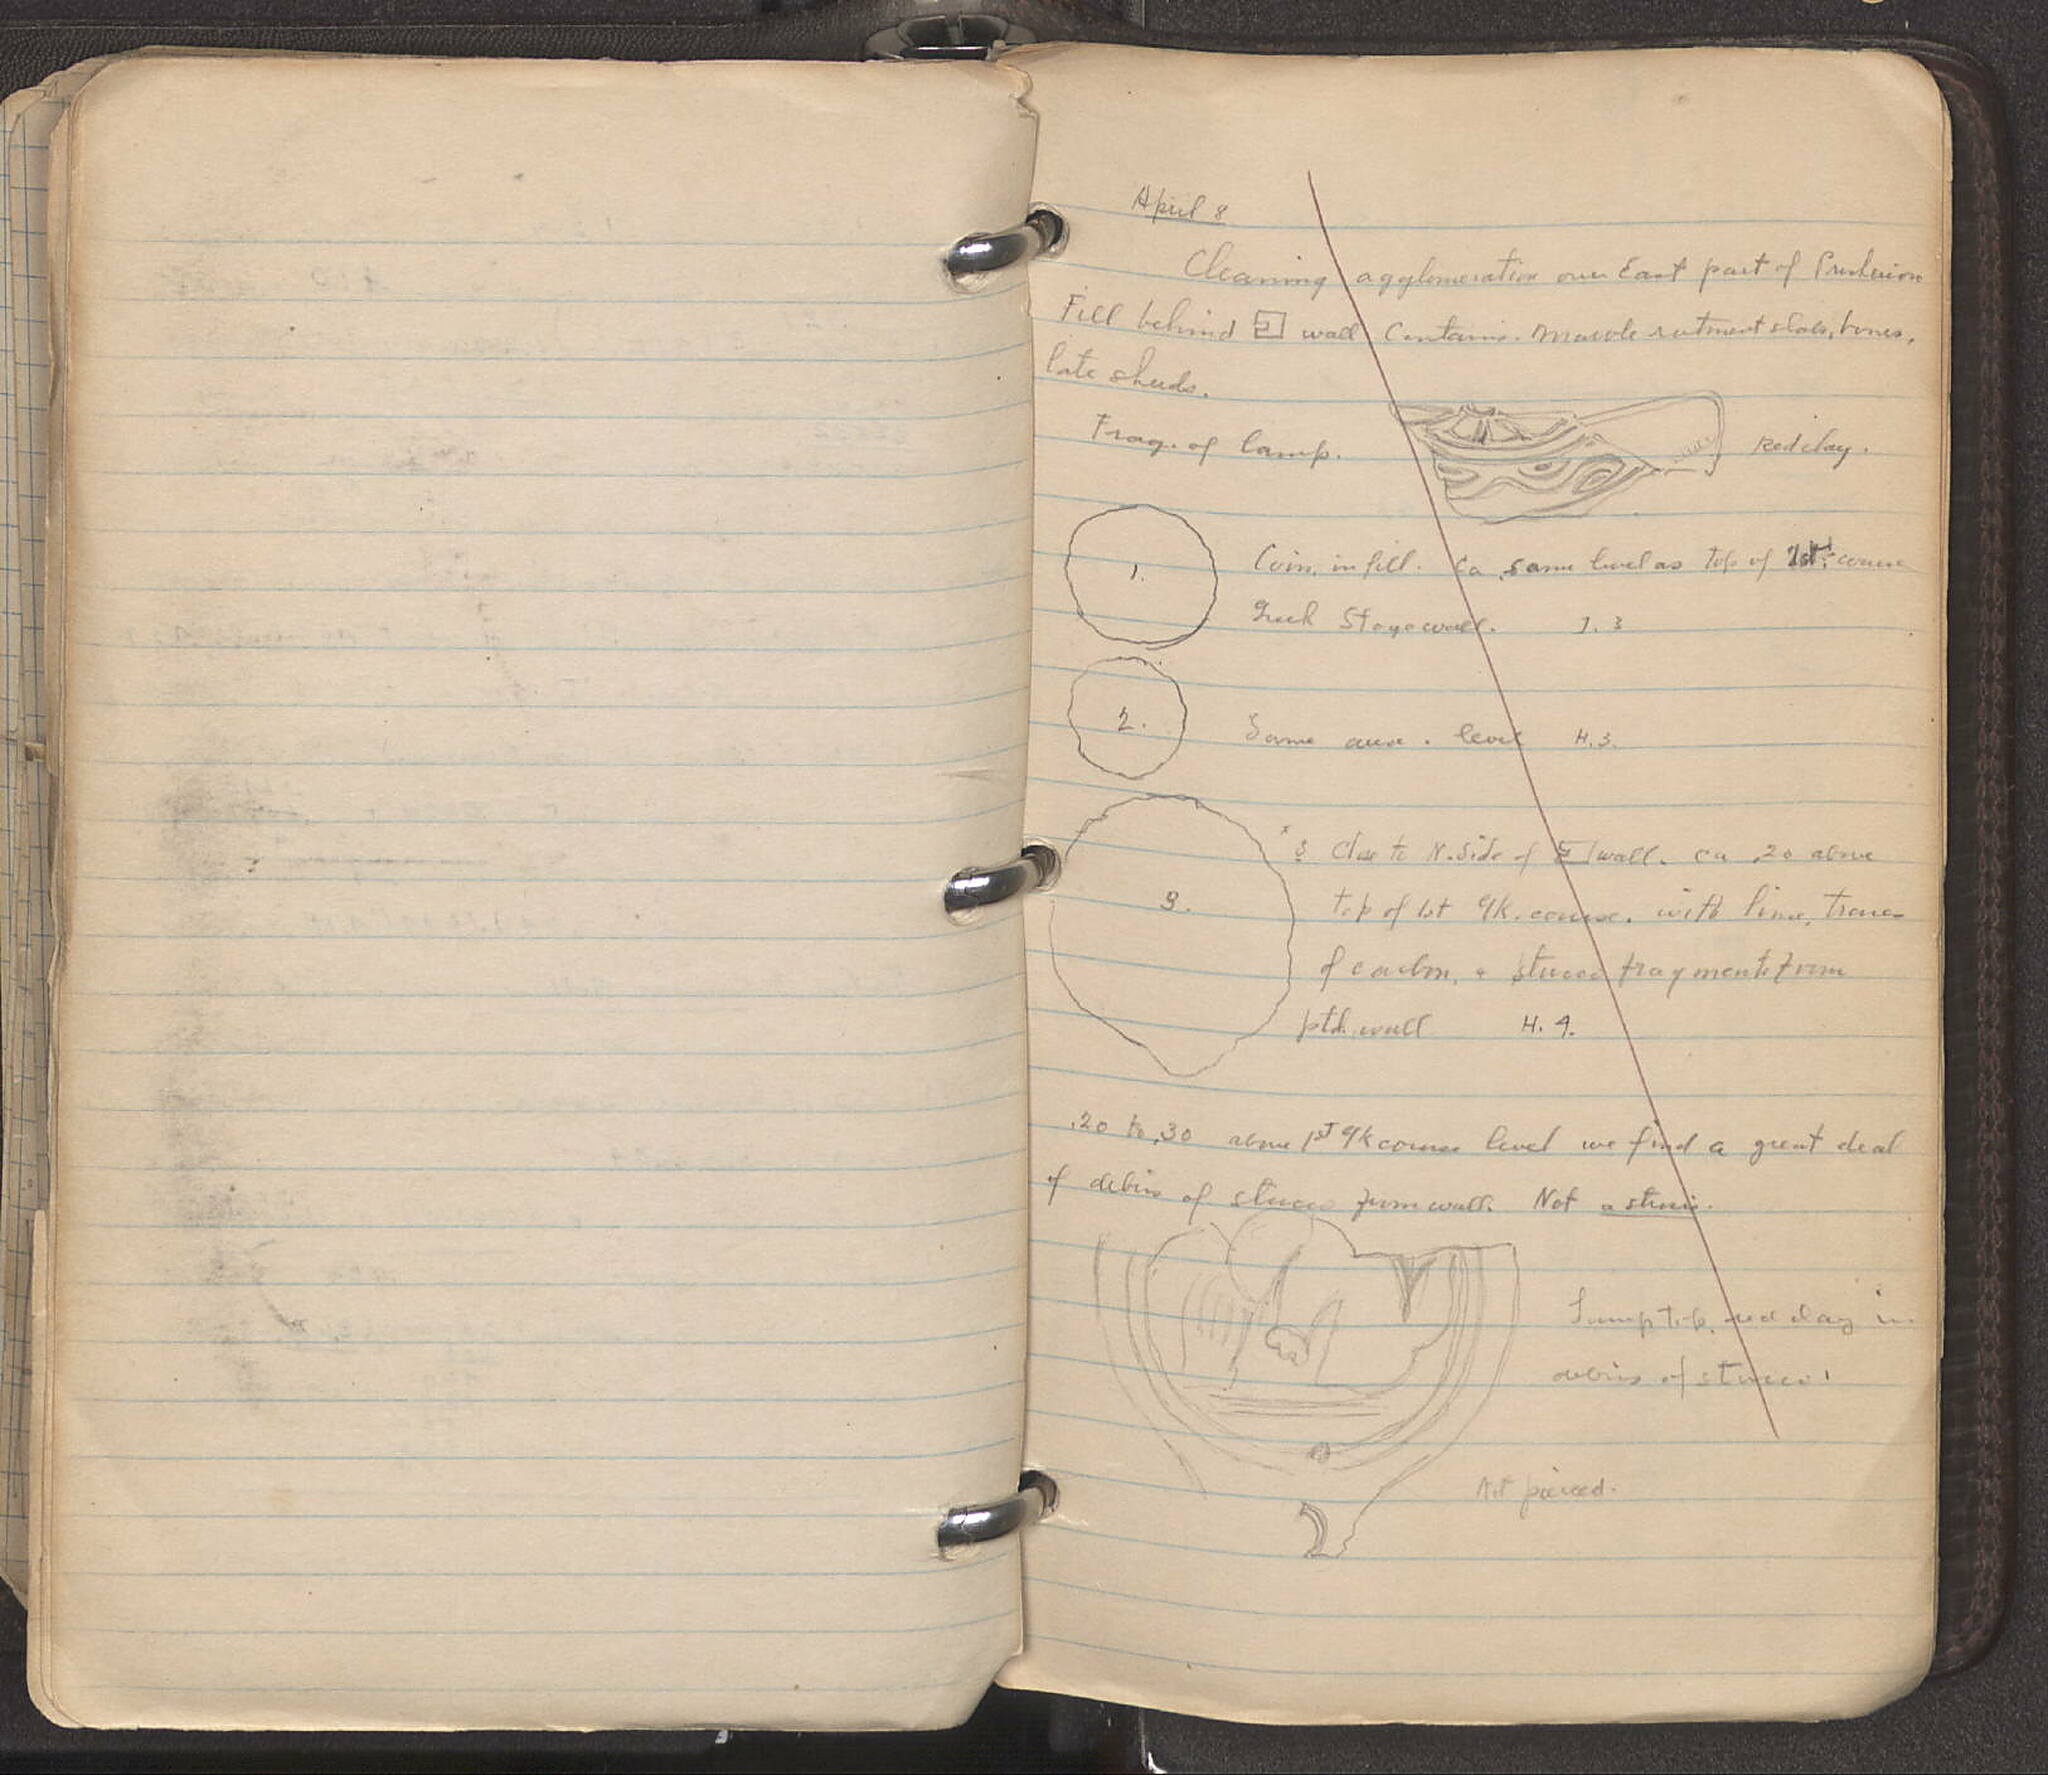 April 8
Cleaning agglomeration over East part of
Fill behind 2 wall Contains. Marble revtment slabs, bones,
late sherds.
Frag. of lamp. Red clay.
1. Coin in fill. Ca same level as top of 1st course
Greek Stage wall. I. 3
2. Same area. level H. 3.
3 Close to N. Side of wall. ca .20 above
3. top of 1st gk. course. with lime, traces
of carbon, & stucco fragments from
ptd. wall H. 4.
.20 to .30 above 1st gk course level we find a great deal
of debris of stucco from wall. Not a strosis.
Lamp top, red clay in
debris of stucco.
Not pierced.